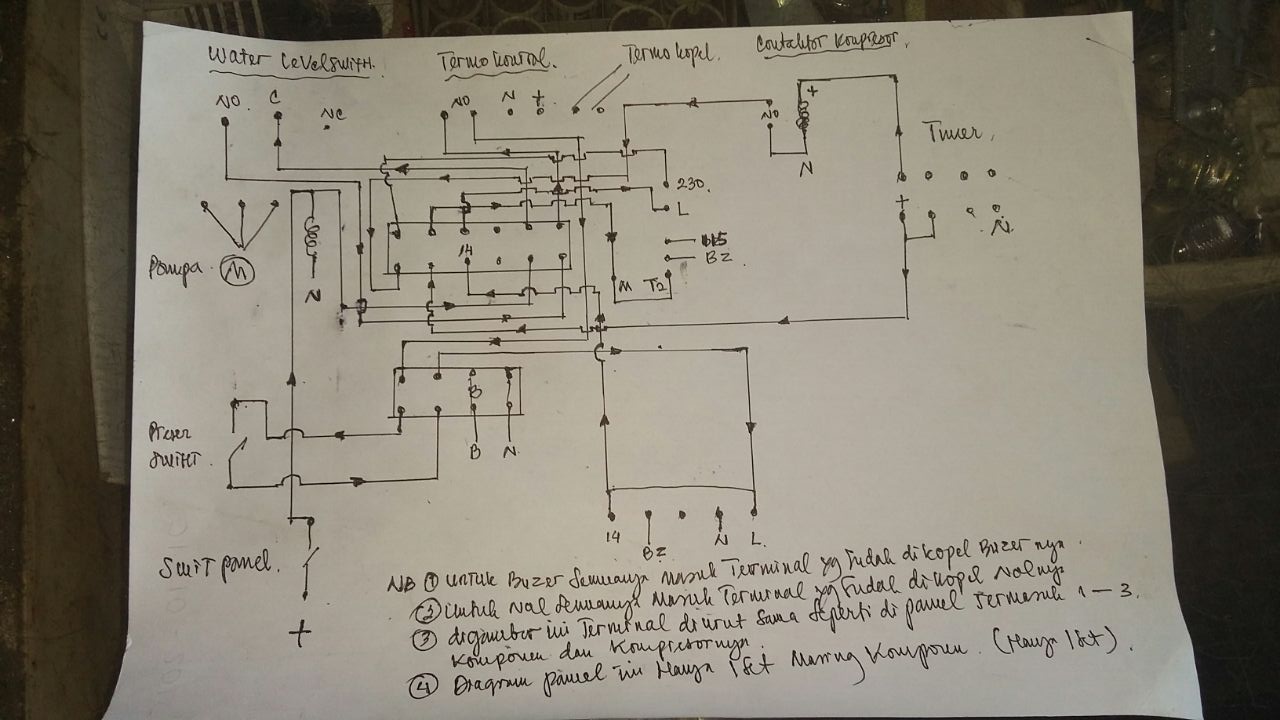 Water Levelswith.
Termo Kontrol.
Termo Kopel.
Contaktor Kompresor.
NO. C NC
NO N +
NO + N
Timer,
+ N
230.
L
BZ
M T2
14
Pompa. M
N
B
B N
Preser
Swiht
14 BZ N L.
Swit panel.
+
NB ① Untuk Buzer Semuanya Masuk Terminal yg Sudah dikopel Buzer nya.
② Untuk Nol Semuanya Masuk Terminal yg Sudah dikopel Nolnya
③ digambar ini Terminal diurut Sama Seperti di panel Termasuk 1 — 3.
Komponen dan Kompresornya.
④ Diagram panel ini Hanya 1 Set Masing Komponen. (Hanya 1 Set).